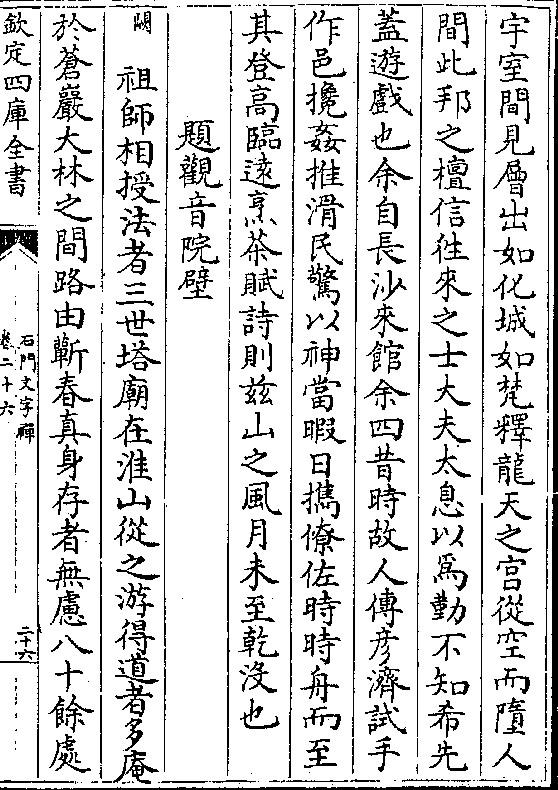 宇室間見層出如化城如梵釋龍天之宮從空而墮人
間此邦之檀信徃來之士大夫太息以爲勤不知希先
蓋遊戲也余自長沙來館余四昔時故人傳彦濟試手
作邑攙姦推滑民驚以神當暇日擕僚佐時時舟而至
其登高臨遠烹茶賦詩則兹山之風月未至乾没也
題觀音院壁
闕 祖師相授法者三世塔廟在淮山從之游得道者多庵
於蒼巖大林之間路由蘄春真身存者無慮八十餘處
欽定四庫全書
石門文字禪
卷二十六
二十六